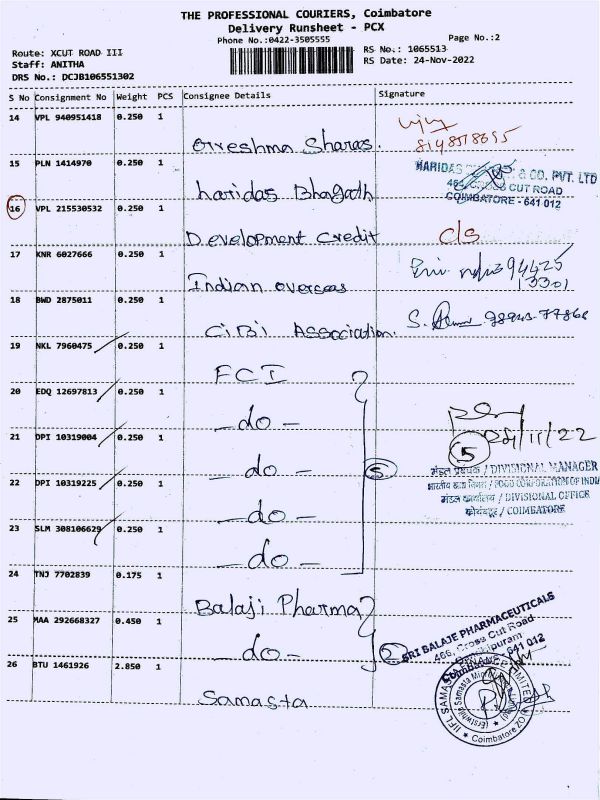 THE PROFESSIONAL COURIERS, Coimbatore
Delivery Runsheet - PCX
Phone No.:0422-3505555
Page No.:2
Route: XCUT ROAD III
RS No.: 1065513
Staff: ANITHA
RS Date: 24-Nov-2022
DRS No.: DCJB106551302
S No Consignment No Weight PCS Consignee Details Signature
14 VPL 940951418 0.250 1
Sharas.
15 PLN 1414970 0.250 1
haridas Bhagath
HARIDAS & CO. PVT. LTD
CROSS CUT ROAD
COIMBATORE - 641 012
16 VPL 215530532 0.250 1
Development Credit C/S
17 KNR 6027666 0.250 1
Indian overseas
94425
18 BWD 2875011 0.250 1
CiBi Association. S.
19 NKL 7960475 0.250 1
FCI
20 EDQ 12697813 0.250 1
- do -
21 DPI 10319004 0.250 1
- do -
5
24/11/22
5
मंडल प्रबंधक / DIVISIONAL MANAGER
भारतीय खाद्य निगम / FOOD CORPORATION OF INDIA
मंडल कार्यालय / DIVISIONAL OFFICE
कोयंबटूर / COIMBATORE
22 DPI 10319225 0.250 1
- do -
23 SLM 308106629 0.250 1
- do -
24 TNJ 7702839 0.175 1
Balaji Pharma
25 MAA 292668327 0.450 1
- do -
2
SRI BALAJE PHARMACEUTICALS
466, Cross Cut Road
641 012
26 BTU 1461926 2.850 1
Samasta
IIFL SAMASTA FINANCE LIMITED
(Erstwhile Samasta Microfinance Limited)
Coimbatore